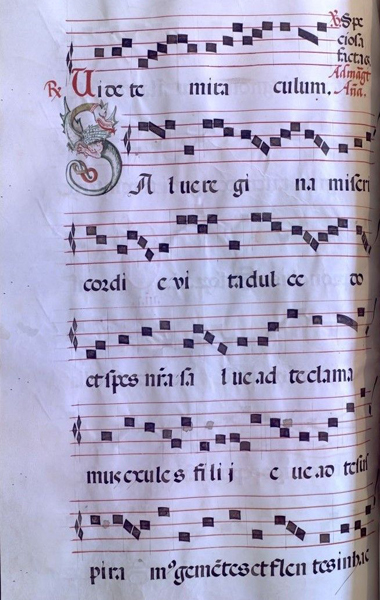 ℣ Spe
ciosa
facta es
℟ Uidete miraculum. Ad mag̃t
Añа.
SAlue regina miseri
cordie vita dulcedo
et spes nr̃a salue ad te clama
mus exules filij eue ad te sus
pira m⁹ gemẽtes et flentes in hac